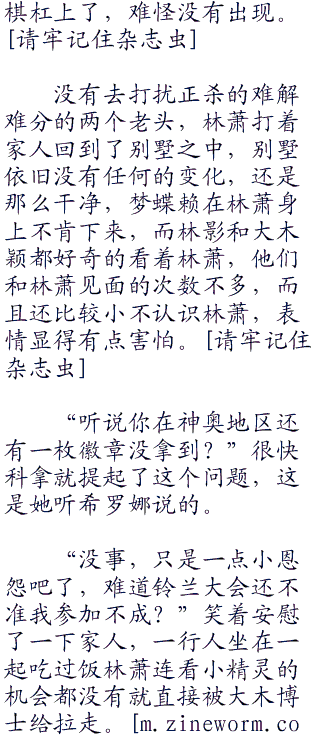 棋杠上了，难怪没有出现。
[请牢记住杂志虫]
没有去打扰正杀的难解
难分的两个老头，林萧打着
家人回到了别墅之中，别墅
依旧没有任何的变化，还是
那么干净，梦蝶赖在林萧身
上不肯下来，而林影和大木
颖都好奇的看着林萧，他们
和林萧见面的次数不多，而
且还比较小不认识林萧，表
情显得有点害怕。[请牢记住
杂志虫]
“听说你在神奥地区还
有一枚徽章没拿到？”很快
科拿就提起了这个问题，这
是她听希罗娜说的。
“没事，只是一点小恩
怨吧了，难道铃兰大会还不
准我参加不成？”笑着安慰
了一下家人，一行人坐在一
起吃过饭林萧连看小精灵的
机会都没有就直接被大木博
士给拉走。[m.zineworm.co